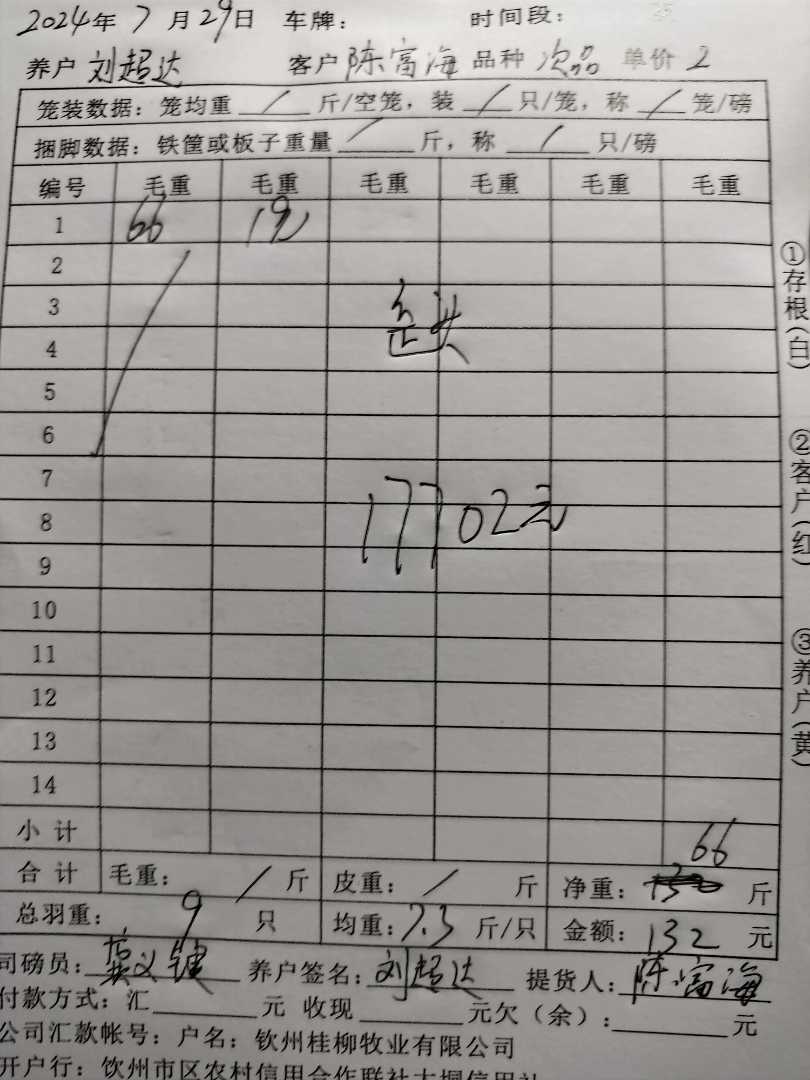 2024年 7 月 29日 车牌： 时间段：
养户 刘超达 客户 陈富海 品种 次品 单价 2
笼装数据：笼均重 / 斤/空笼，装 / 只/笼，称 / 笼/磅
捆脚数据：铁筐或板子重量 / 斤，称 / 只/磅
编号 毛重 毛重 毛重 毛重 毛重 毛重
1 66
2
3
4
5
6
7
8 17702元
9
10
11
12
13
14
小 计
合 计 毛重： / 斤 皮重： / 斤 净重： 66 斤
总羽重： 9 只 均重：7.3 斤/只 金额：132 元
司磅员： 养户签名：刘超达 提货人：陈富海
付款方式：汇 元 收现 元欠（余）： 元
公司汇款帐号：户名：钦州桂柳牧业有限公司
开户行：钦州市区农村信用合作联社大垌信用社
①存根（白）
②客户（红）
③养户（黄）